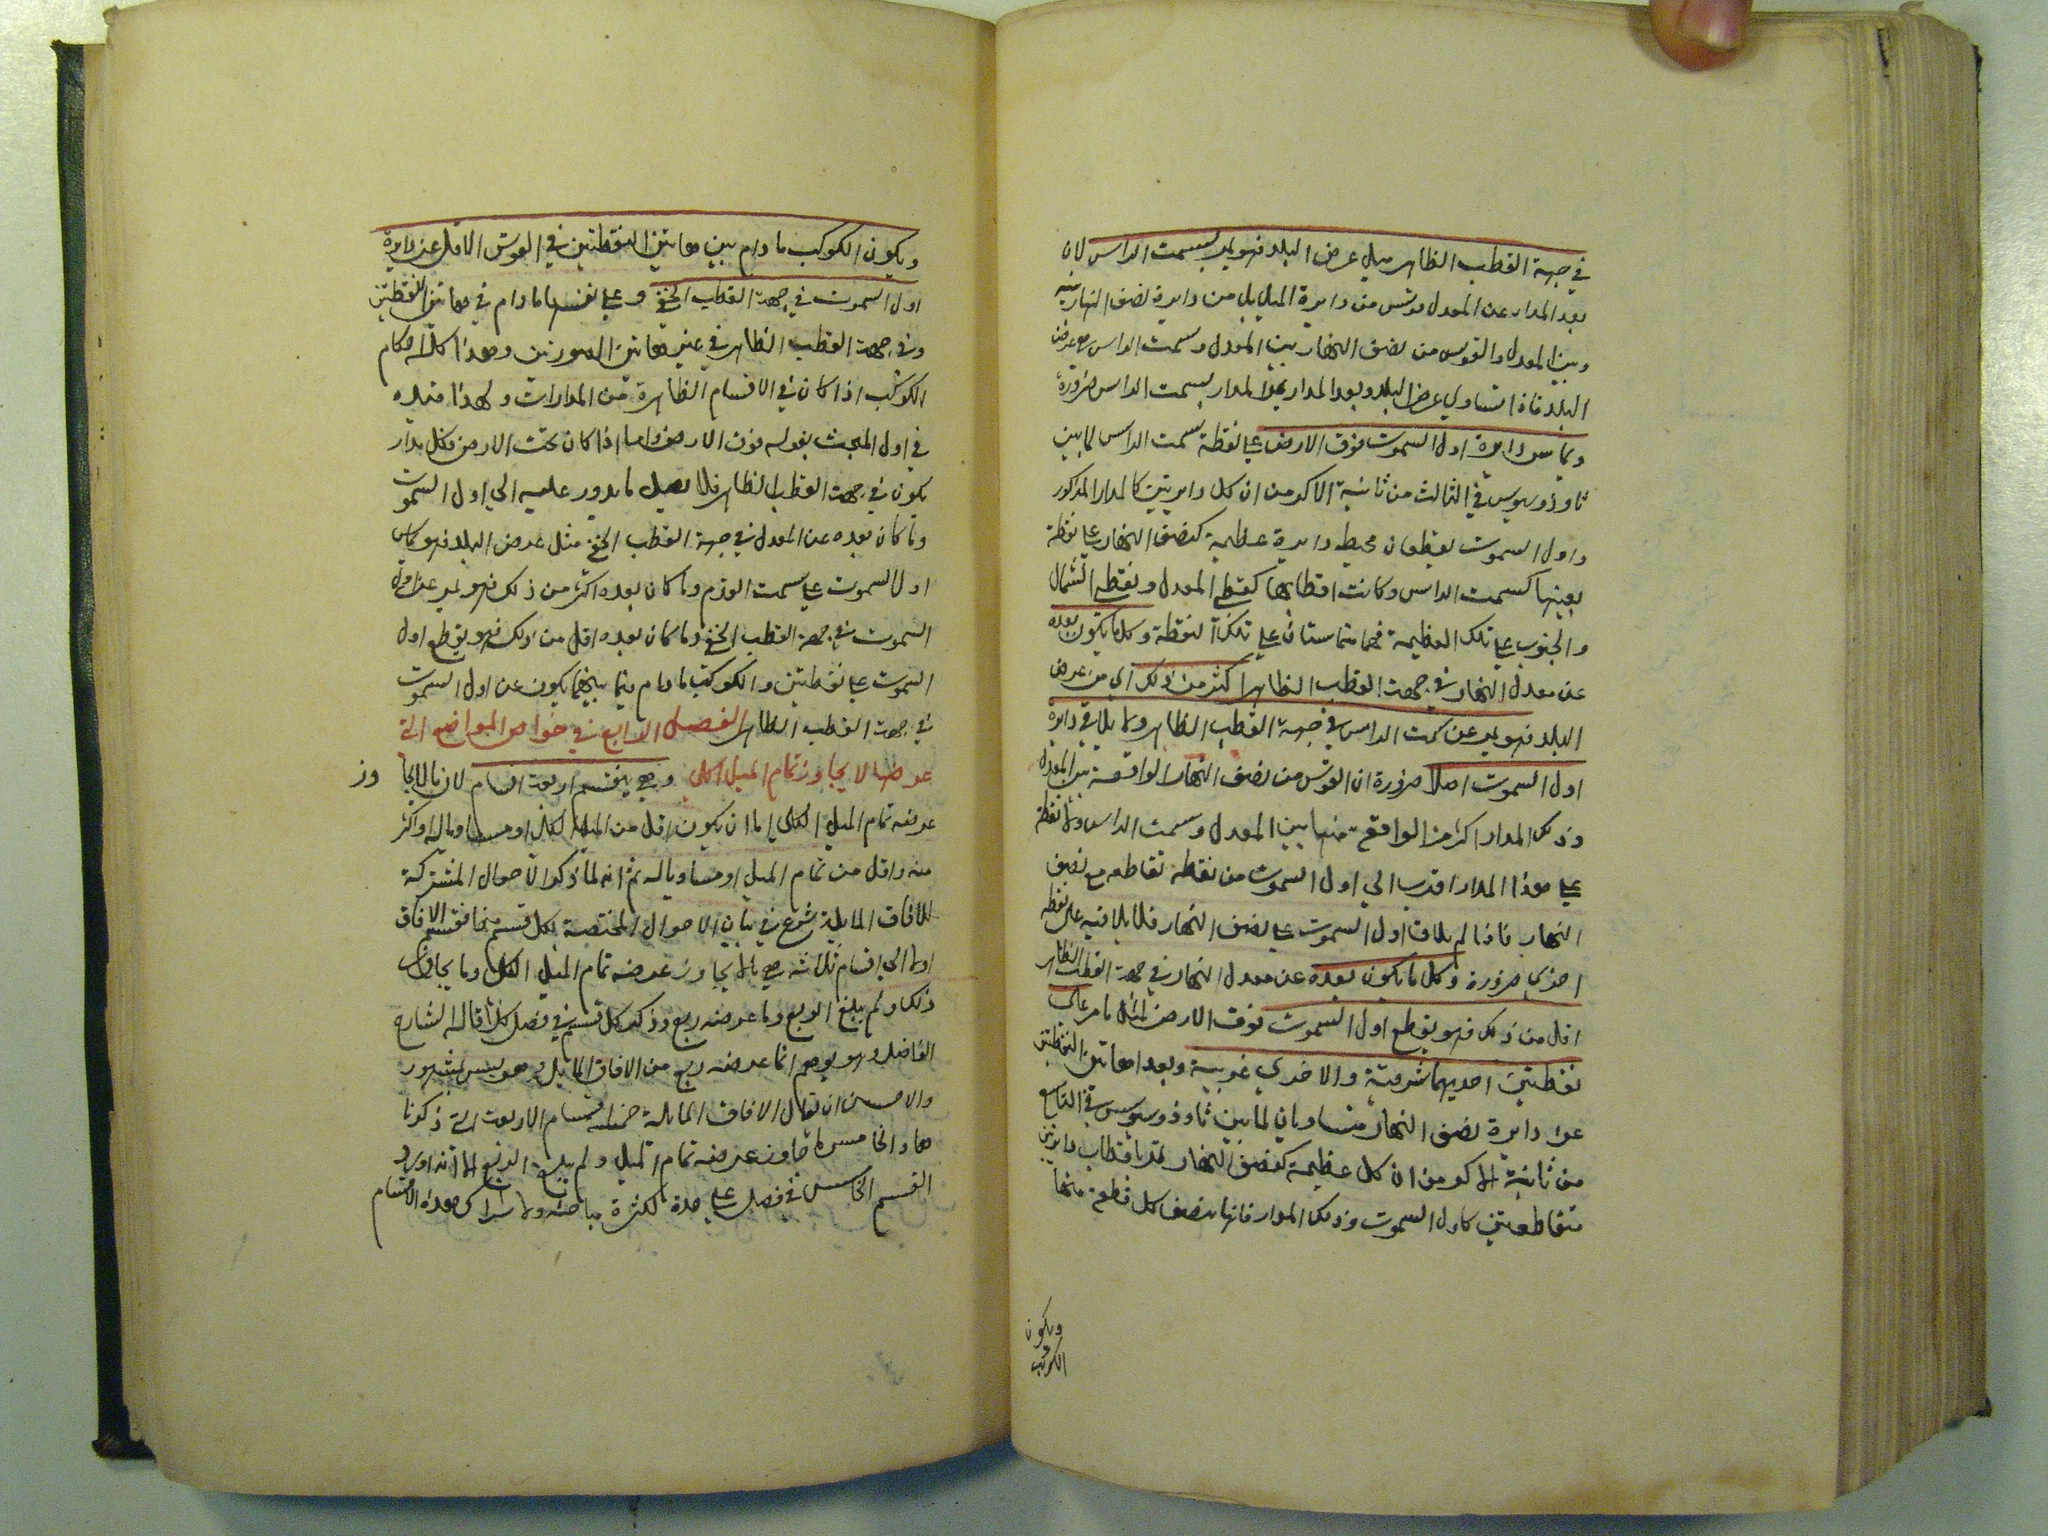 في جهة القطب الظاهر مثل عرض البلد فهو يمر بسمت الراس لان
بعد المدار عن المعدل قوس من دايرة الميل بل من دايرة نصف النهار بينه
وبين المعدل والقوس من نصف النهار بين المعدل وسمت الراس هو عرض
البلد فاذا تساوي عرض البلد وبعد المدار يمر المدار بسمت الراس ضرورة
ويماس دايرة اول السموت فوق الارض علي نقطة سمت الراس لما بين
ثاوذوسيوس في الثالث من ثانية الاكر من ان كل دايرتين كالمدار المذكور
واول السموت يقطعان محيط دايرة عظيمة كنصف النهار علي نقطة
بعينها كسمت الراس وكانت اقطابهما كقطبي المعدل ونقطتي الشمال
والجنوب علي تلك العظيمة فهما متماستان علي تلك النقطة وكل ما يكون بعده
عن معدل النهار في جهة القطب الظاهر اكثر من ذلك اي من عرض
البلد فهو يمر عن سمت الراس في جهة القطب الظاهر ولا يلاقي دايرة
اول السموت اصلا ضرورة ان القوس من نصف النهار الواقعة بين المعدل
وذلك المدار اكثر من الواقعة منها بين المعدل وسمت الراس نقطة
علي هذا المدار اقرب الي اول السموت من نقطة تقاطعه مع نصف
النهار فاذا لم يلاق اول السموت علي نصف النهار فلا يلاقيه على نقطة
اخري ضرورة وكل ما يكون بعده عن معدل النهار في جهة القطب الظاهر
اقل من ذلك فهو يقطع اول السموت فوق الارض لمثل ما مر على
نقطتين احديهما شرقية والاخري غربية وبعد هاتين النقطتين
عن دايرة نصف النهار متساويان لما بين ثاوذوسيوس في التاسع
من ثانية الاكر من ان كل عظيمة كنصف النهار تمر باقطاب دايرتين
متقاطعتين كاول السموت وذلك المدار فانها تنصف كل قطعة منها
ويكون
الكوكب
ويكون الكوكب ما دام بين هاتين النقطتين في القوس الاقل عن دايرة
اول السموت في جهة القطب الخفي وعلي نفسها ما دام في هاتين النقطتين
وفي جهة القطب الظاهر في غير هاتين الصورتين وهذا كله احكام
الكوكب اذا كان في الاقسام الظاهرة من المدارات ولهذا قيده
في اول المبحث بقوله فوق الارض واما اذا كان تحت الارض فكل مدار
يكون في جهة القطب الظاهر فلا يصل ما يدور عليه الي اول السموت
وما كان بعده عن المعدل في جهة القطب الخفي مثل عرض البلد فهو يماس
اول السموت علي سمت القدم وما كان بعده اكثر من ذلك فهو يمر عن اول
السموت في جهة القطب الخفي وما كان بعده اقل من ذلك فهو يقطع اول
السموت علي نقطتين والكوكب ما دام فيما بينهما يكون عن اول السموت
في جهة القطب الظاهر الفصل الرابع في خواص المواضع التي
عرضها لا يجاوز تمام الميل الكلي وهي ينقسم اربعة اقسام لان ما لا يجا
وز
عرضه تمام الميل الكلي اما ان يكون اقل من الميل الكلي او مساويا له او اكثر
منه واقل من تمام الميل او مساويا له ثم انه لما ذكر الاحوال المشتركة
للافاق المايلة شرع في بيان الاحوال المختصة بكل قسم منها فقسم الافاق
اولا الي اقسام ثلاثة هي ما لا يجاوز عرضه تمام الميل الكلي وما يجاوز
ذلك ولم يبلغ الربع وما عرضه ربع وذكر كل قسم في فصل كذا قال الشارح
الفاضل وهو يوهم انما عرضه ربع من الافاق المايلة وهو ليس بمشهور
والاحسن ان يقال الافاق المايلة خمسة اقسام الاربعة التي ذكرنا
ها والخامس ما جاوز عرضه تمام الميل ولم يبلغ الربع الا انه اورد
القسم الخامس في فصل علي حدة لكثرة مباحثه ولاشتراك هذه الاقسام